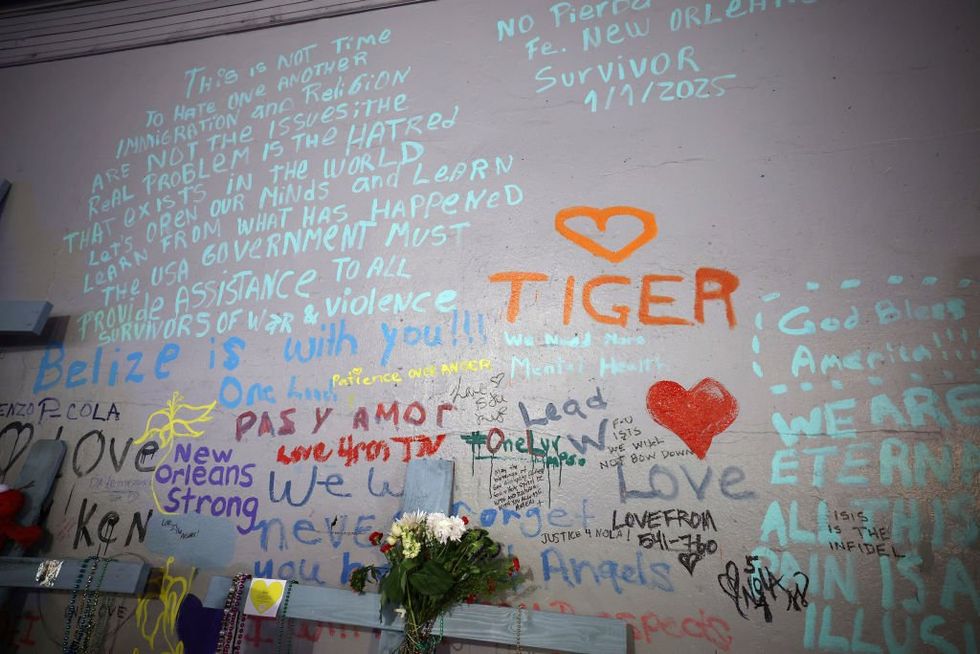 THIS IS NOT TIME
TO HATE ONE ANOTHER
IMMIGRATION and Religion
ARE NOT THE ISSUES; THE
REAL PROBLEM IS THE HATRED
THAT EXISTS IN THE WORLD
LET'S OPEN OUR MINDS and LEARN
LEARN FROM WHAT HAS HAPPENED
THE USA GOVERNMENT MUST
PROVIDE ASSISTANCE TO ALL
SURVIVORS OF WAR & violence
NO Pierda
Fe. NEW ORLEANS
SURVIVOR
1/1/2025
TIGER
We Need More
Mental Health
God Bless
America!!!
Belize is with you!!!
One
Patience over ANGER
ENZO P-COLA
PAS Y AMOR
Love 4rm TN
#OneLyr
Lead
W
F-U
ISIS
WE WILL
NOT BOW DOWN
Love
LOVE
New
Orleans
Strong
KEN
We W
never forget
you
Angels
JUSTICE 4 NOLA!
LOVE FROM
541-760
NOLA
WE ARE
ETERN
ALL THIS
PAIN IS A
ILLUS
ISIS
IS THE
INFIDEL